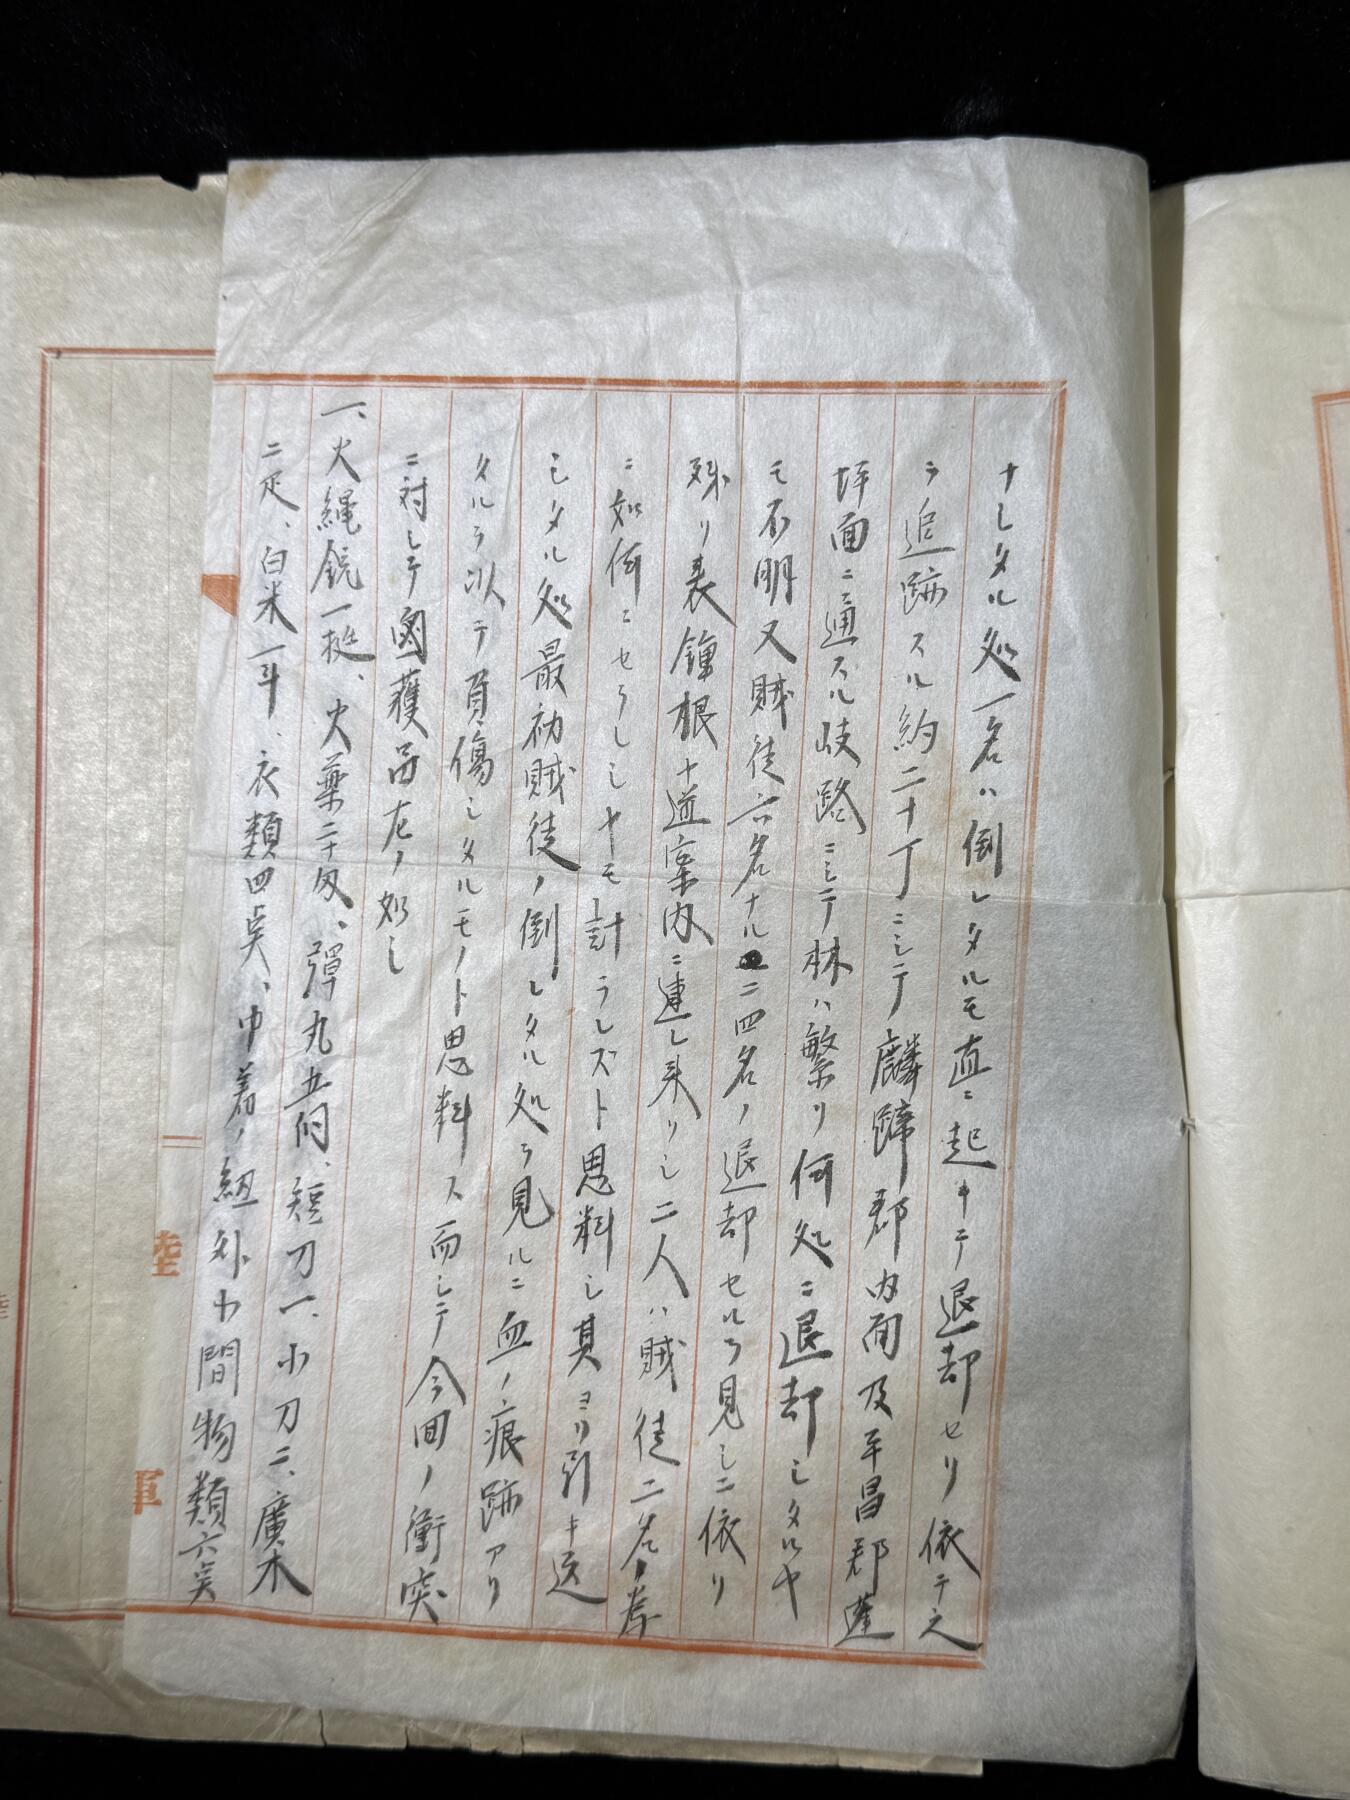 ナシタル処一名ハ倒レタルモ直ニ起キテ退却セリ依テ之
ヲ追跡スル約二十丁ニシテ麟蹄郡内面及平昌郡蓬
坪面ニ通ズル岐路ニシテ林ハ繁リ何処ニ退却シタルヤ
モ不明又賊徒六名ナルニ四名ノ退却セルヲ見シニ依リ
殊リ表鍾根ナ道案内ニ連レ来リシ二人ハ賊徒二名ノ為
ニ如何ニセラレシヤモ計ラレズト思料シ其ヨリ引キ送
シタル処最初賊徒ノ倒レタル処ヲ見ルニ血ノ痕跡アリ
タルヲ以テ負傷シタルモノト思料ス而シテ今回ノ衝突
ニ対シテ鹵獲品左ノ如シ
一、火縄銃一挺、火薬二十匁、弾丸五個、短刀一、小刀二、廣木
二疋、白米一斗、衣類四点、巾着ノ紐外小間物類六点
陸
軍